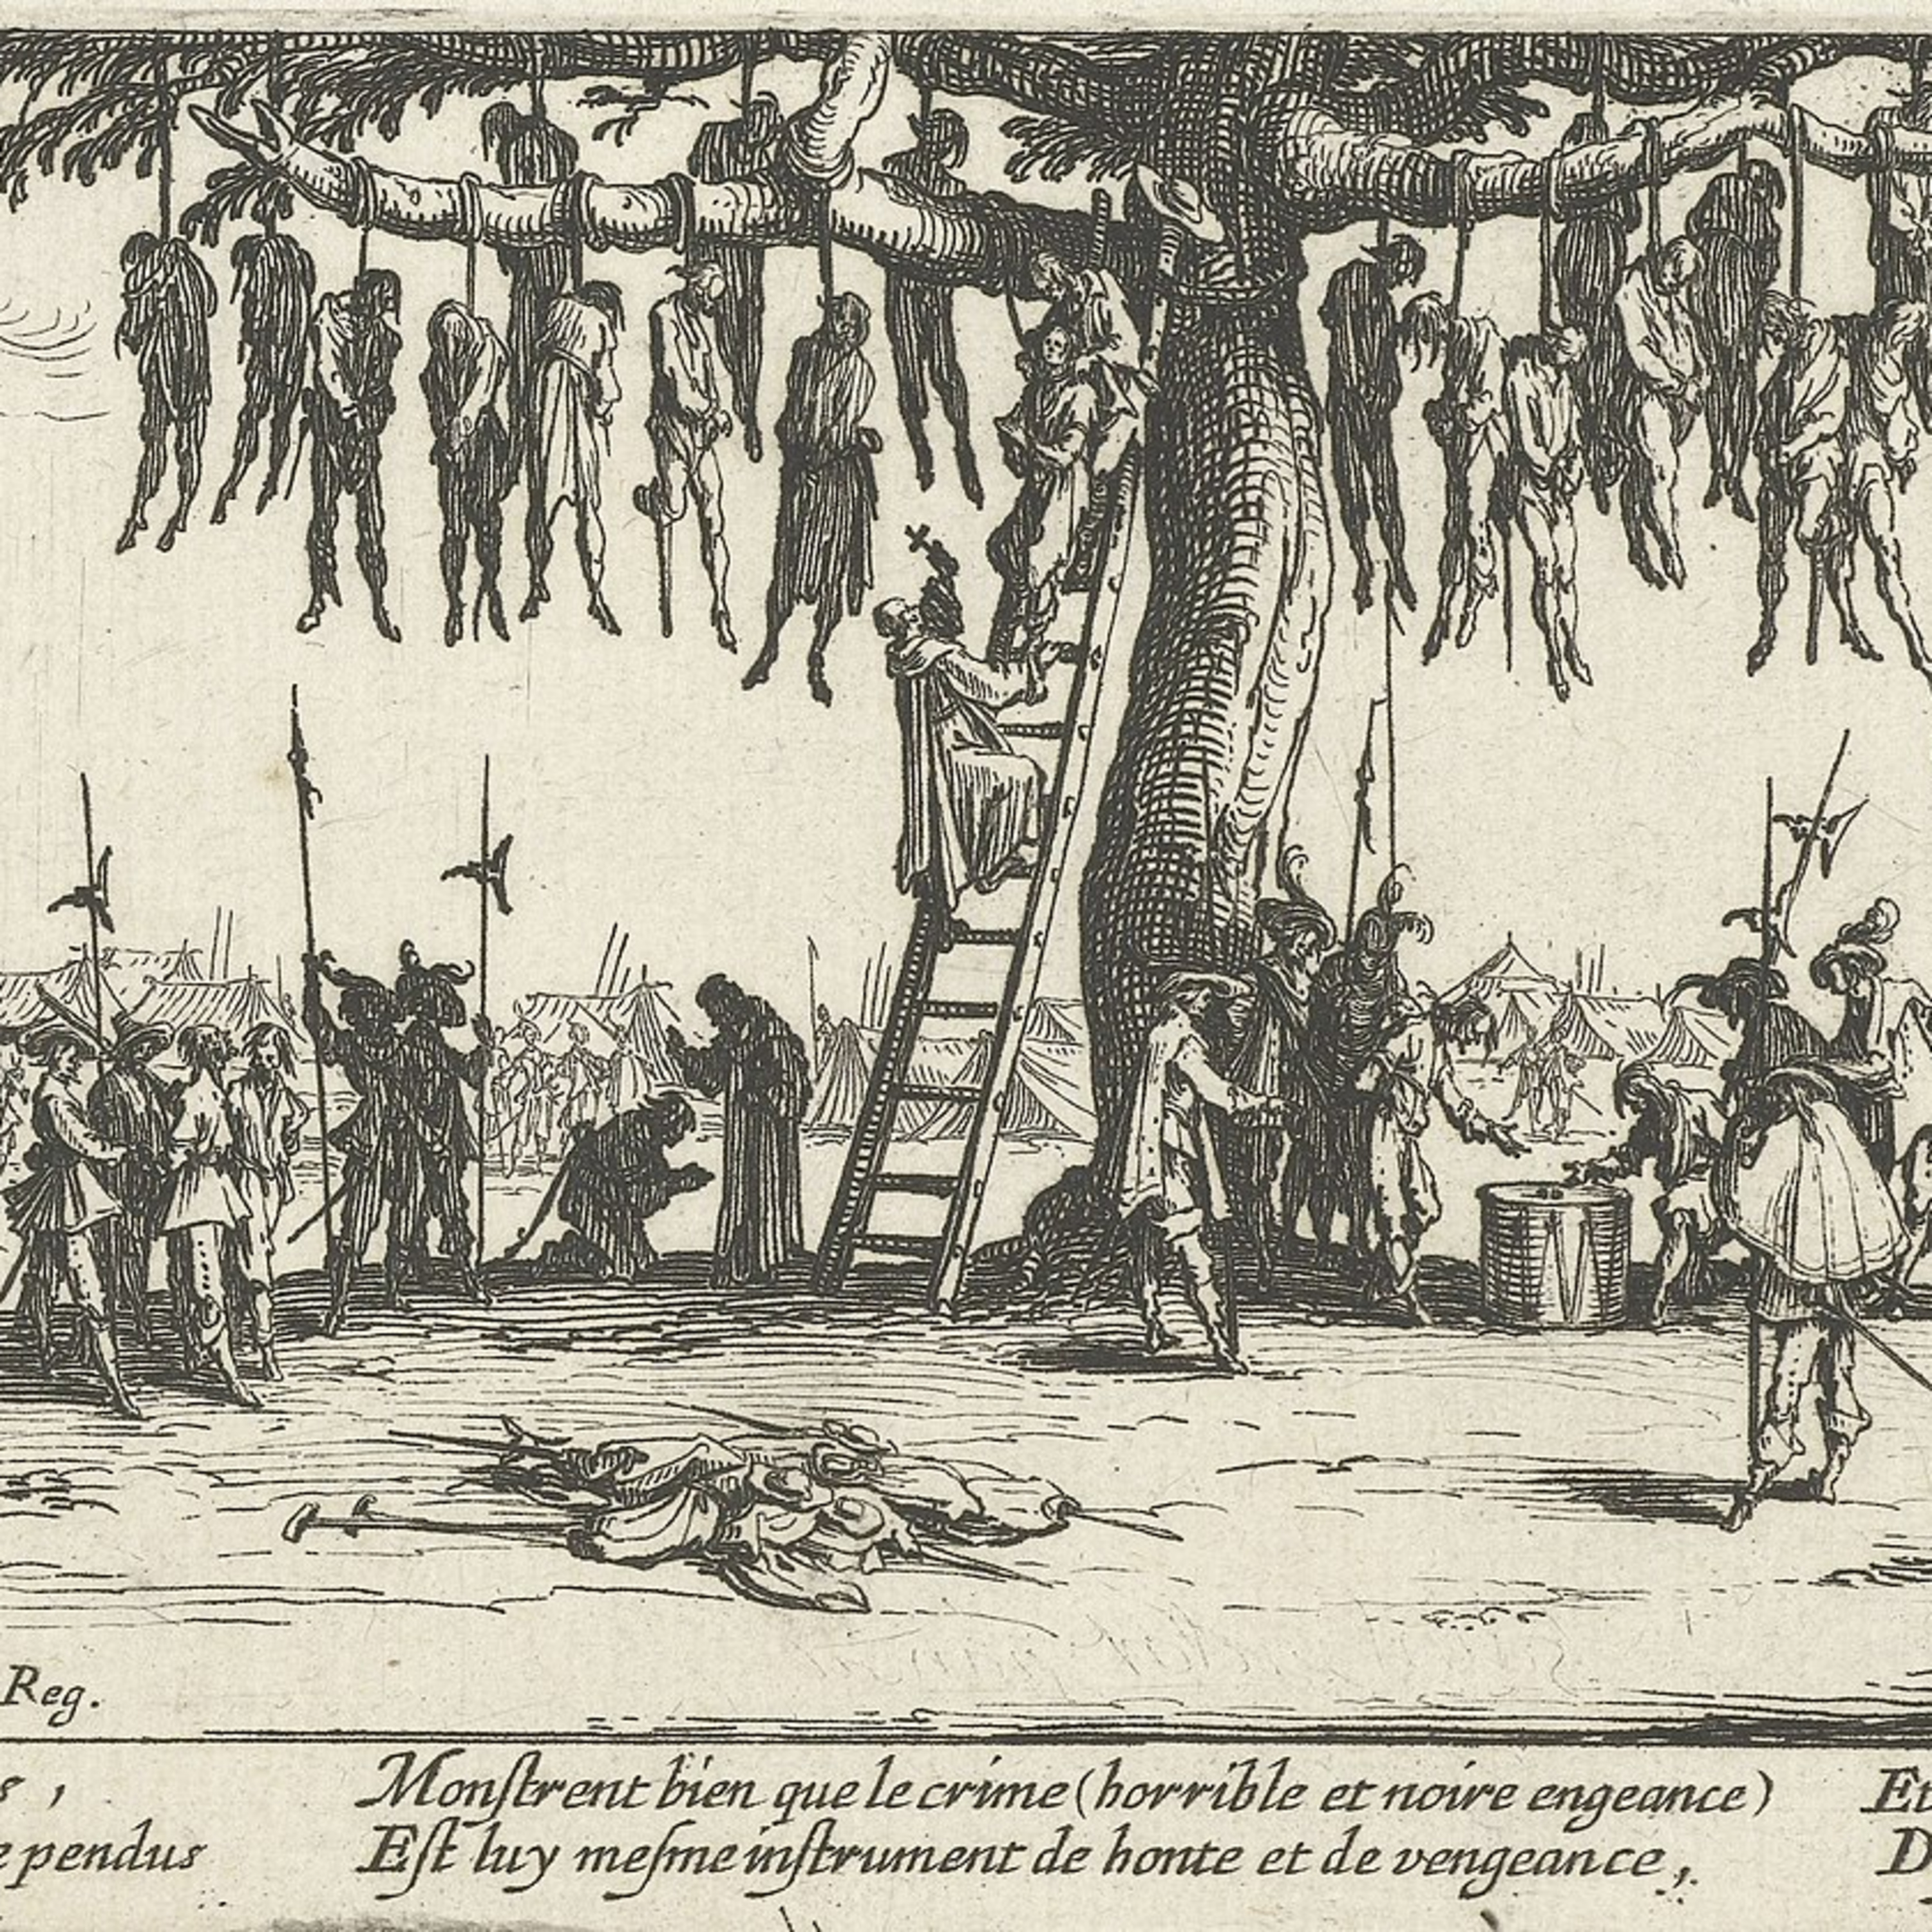 Reg.
s,
e pendus
Monſtrent bien que le crime (horrible et noire engeance)
Eſt luy meſme inſtrument de honte et de vengeance,
Et
D